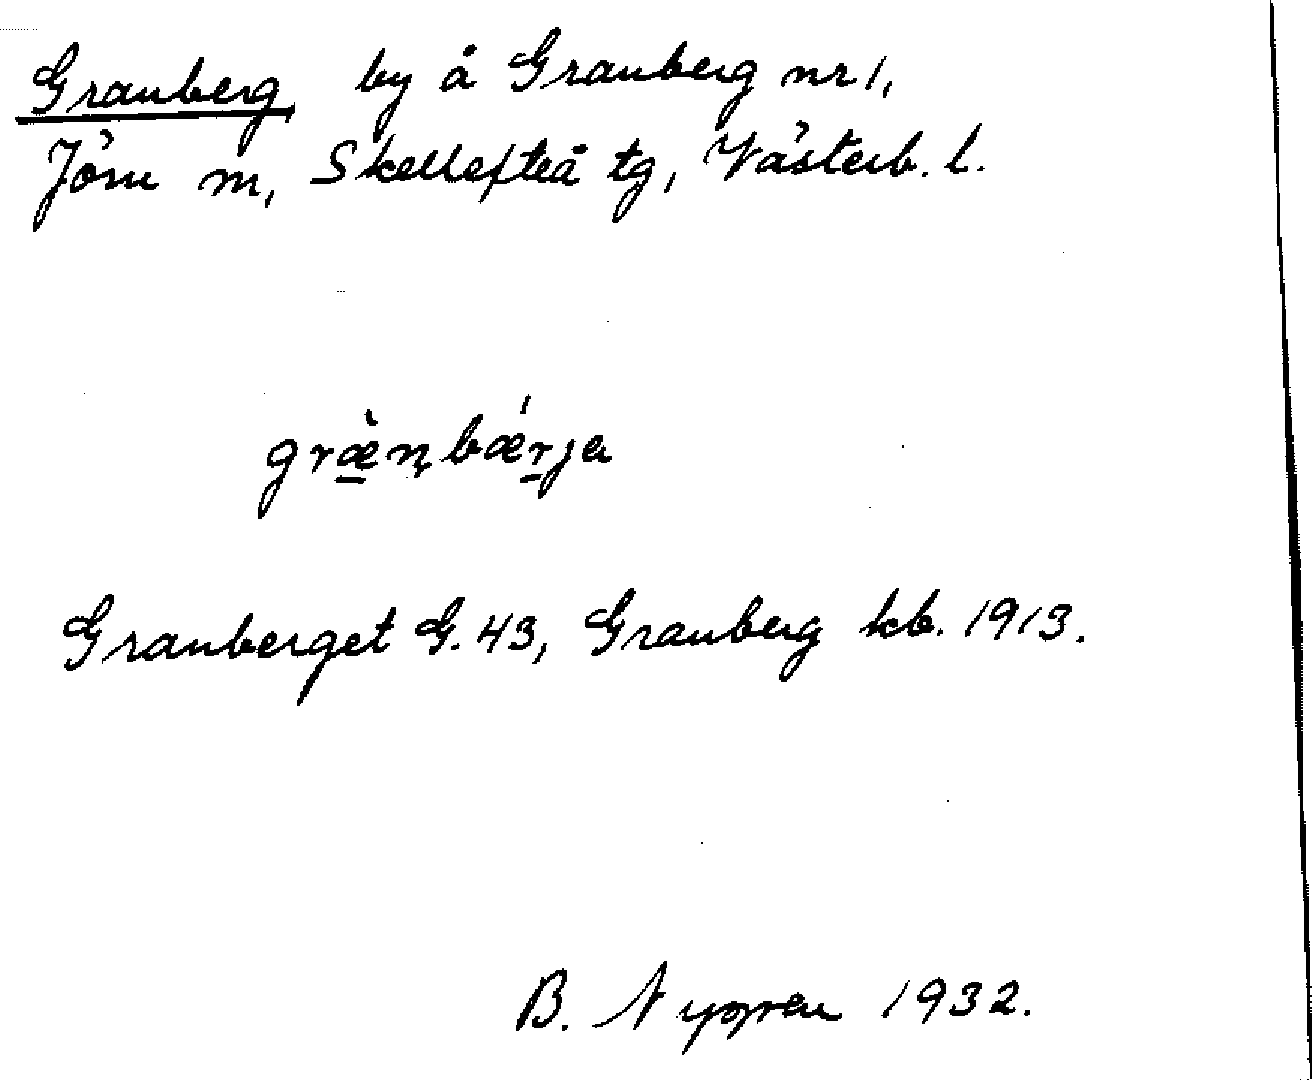 Granberg, by å Granberg nr 1,
Jörn m, Skellefteå tg, Västerb. l.
græ̠̀n̥bǽr̠ja
Granberget G. 43, Granberg kb. 1913.
B. Nygren 1932.